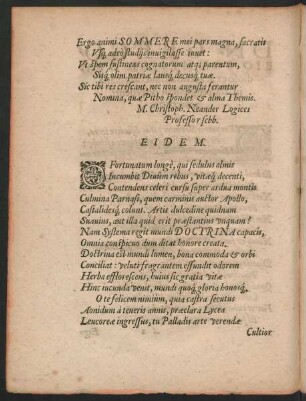 Ergo animi SOMMERE mei pars magna, sacratis
Usq; adeo studijs invigilasse iuvet:
Ut spem sustineas cognatorum atq; parentum,
Sisq; olim patriæ lausq; decusq; tuæ.
Sic tibi res crescant, nec non augusta ferantur
Nomina, quæ Pitho spondet & alma Themis.
M. Christoph. Neander Logices
Professor scbb.
EIDEM.
O Fortunatum longè, qui sedulus almis
Incumbit Divûm rebus, vitæq; decenti,
Contendens celeri cursu super ardua montis
Culmina Parnassi, quem carminis auctor Apollo,
Castalidesq; colunt. Artis dulcedine quidnam
Suavius, aut illa quid erit præstantius unquam?
Nam Systema regit mundi DOCTRINA capacis,
Omnia conspicuo dum ditat honore creata.
Doctrina est mundi lumen, bona commoda & orbi
Conciliat: veluti fragrantem essundit odorem
Herba efflorescens, huius sic gratia vitæ
Hinc iucunda venit, mundi quoq; gloria honosq;.
O te felicem nimium, qui castra secutus
Aonidum à teneris annis, præclara Lycea
Leucoreæ ingressus, tu Palladis arte verendæ
Cultior